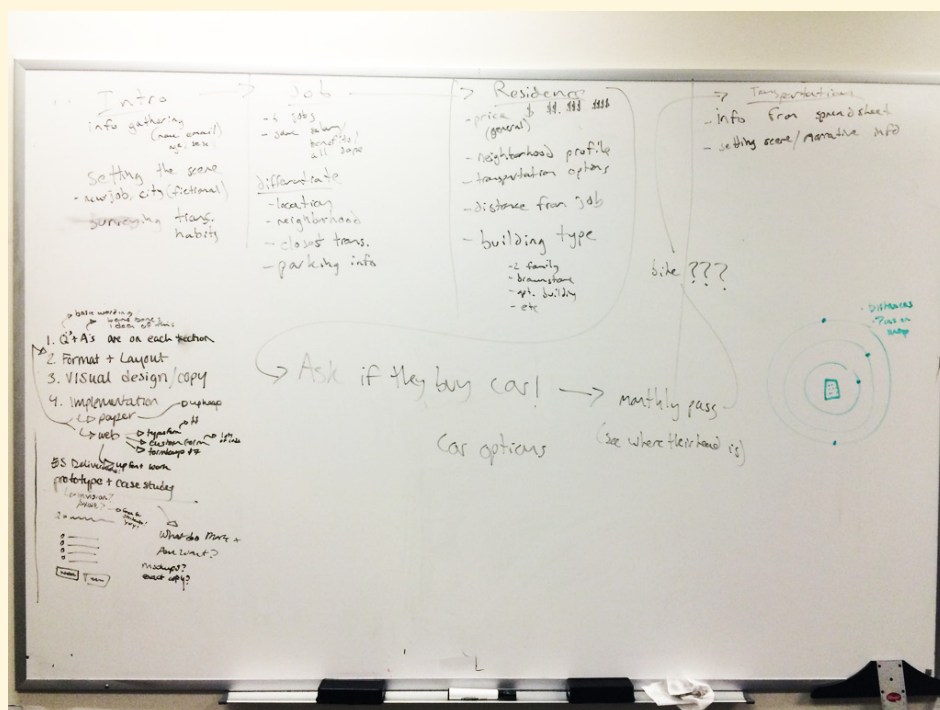 Intro
info gathering
(name email
age, sex)
setting the scene
- new job, city (fictional)
surveying trans.
habits
Job
- 4 jobs
- same salary/
benefits/
all dope
differentiate
- location
- neighborhood
- closest trans.
- parking info
Residence
- price $ $$ $$$ $$$$
(general)
- neighborhood profile
- transportation options
- distance from job
- building type
- 2 family
- brownstone
- apt. building
- etc
Transportation
- info from spreadsheet
- setting scene/narrative info
bike ???
Ask if they buy car!
car options
monthly pass
(see where their head is)
- Distances
- Pins on
map
basic wording
1. Q+A's are on each section
2. Format + Layout
3. Visual design/copy
4. Implementation
paper
upkeep
web
typeform
$$
custom form
upfront work
prototype + case study
What do
want?
mockups?
exact copy?